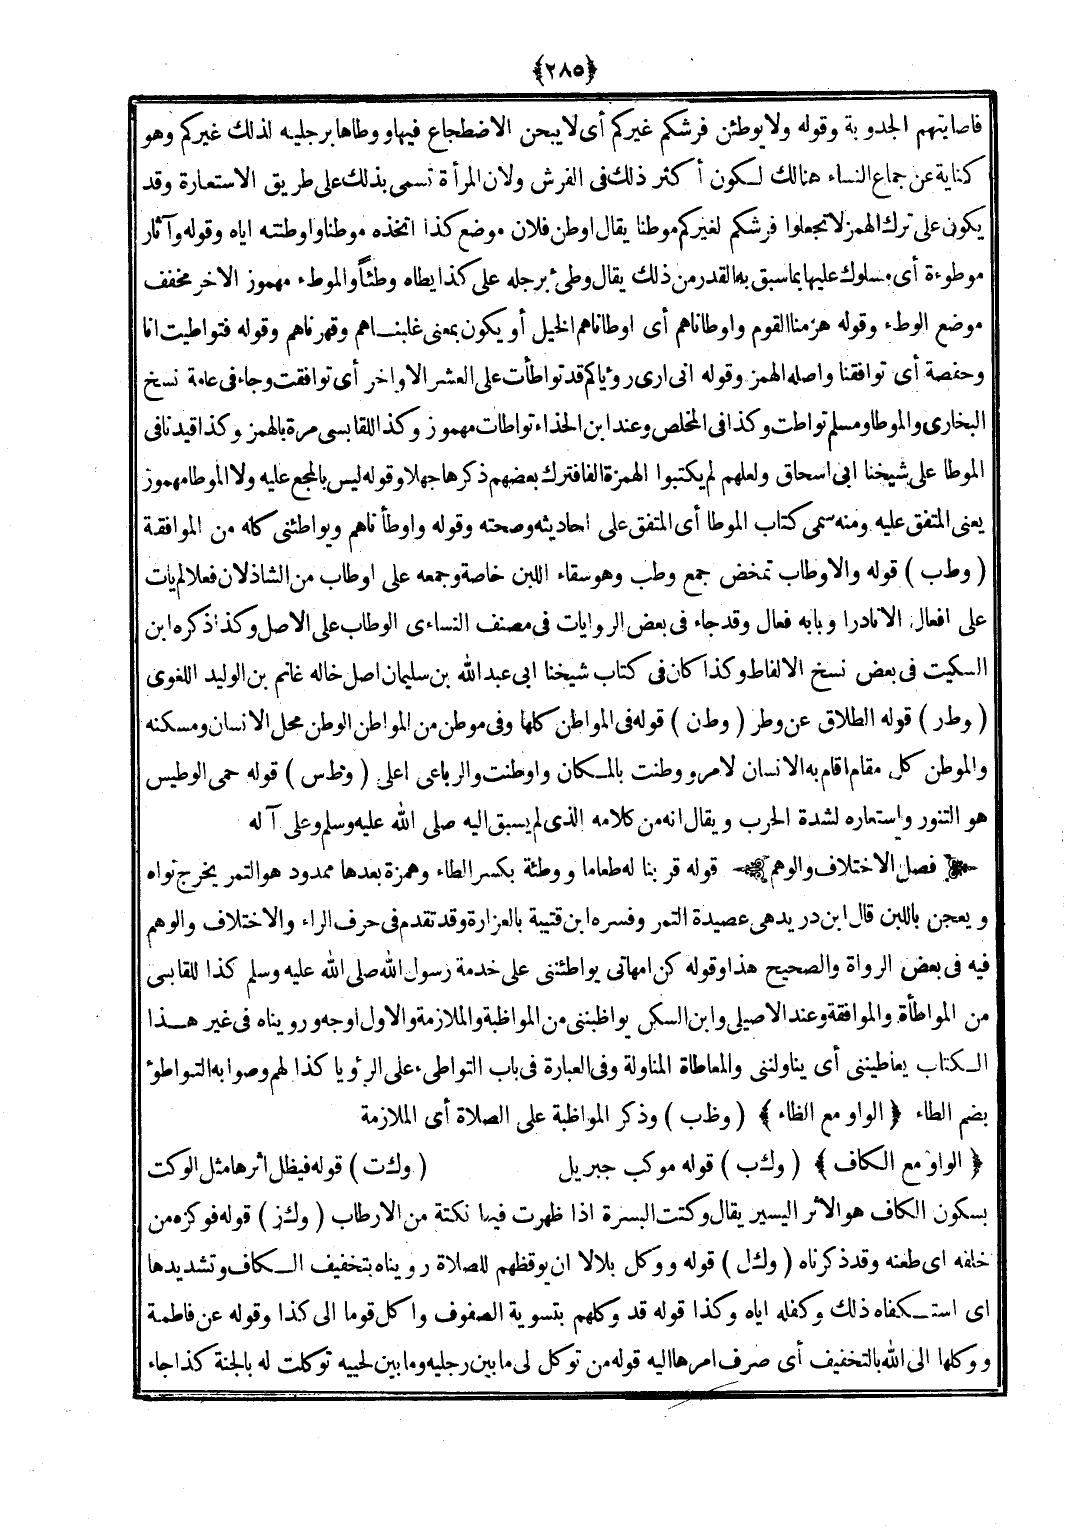 ﴿٢٨٥﴾
فاصابتهم الجدوبة وقوله ولا يوطئن فرشكم غيركم أى لا يبحن الاضطجاع فيها ووطاها برجلينه لذلك غيركم وهو
كناية عن جماع النساء هنالك لكون أكثر ذلك فى الفرش ولان المرأة تسمى بذلك على طريق الاستعارة وقد
يكون على ترك الهمز لا تجعلوا فرشكم لغيركم موطنا يقال اوطن فلان موضع كذا اتخذه موطنا واوطنته اياه وقوله وآثار
موطوءة أى مسلوك عليها بما سبق به القدر من ذلك يقال وطئ برجله على كذا يطاه وطئاً والموطء مهموز الاخر مخفف
موضع الوطء وقوله هزمنا القوم واوطاناهم أى اوطاناهم الخيل أو يكون بمعنى غلبناهم وقهرناهم وقوله فتواطيت انا
وحفصة أى توافقنا واصله الهمز وقوله انى ارى رؤياكم قد تواطأت على العشر الاواخر أى توافقت وجاء فى عامة نسخ
البخارى والموطا ومسلم تواطت وكذا فى المخلص وعند ابن الحذاء تواطات مهموز وكذا للقابسى مرة بالهمز وكذا قيدناه فى
الموطا على شيخنا ابى اسحاق ولعلهم لم يكتبوا الهمزة الفا فترك بعضهم ذكرها جهلا وقوله ليس بالمجمع عليه ولا الموطا مهموز
يعنى المتفق عليه ومنه سمى كتاب الموطا أى المتفق على احاديثه وصحته وقوله واوطأناهم ويواطئنى كله من الموافقة
( وطب ) قوله والاوطاب تمخض جمع وطب وهو سقاء اللبن خاصة وجمعه على اوطاب من الشاذ لان فعلا لم يات
على افعال الا نادرا وبابه فعال وقد جاء فى بعض الروايات فى مصنف النساءى الوطاب على الاصل وكذا ذكره ابن
السكيت فى بعض نسخ الالفاظ وكذا كان فى كتاب شيخنا ابى عبد الله بن سليمان اصل خاله غانم بن الوليد اللغوى
( وطر ) قوله الطلاق عن وطر ( وطن ) قوله فى المواطن كلها وفى موطن من المواطن الوطن محل الانسان ومسكنه
والموطن كل مقام اقام به الانسان لامر ووطنت بالمكان واوطنت والرباعى اعلى ( وطس ) قوله حمى الوطيس
هو التنور واستعاره لشدة الحرب ويقال انه من كلامه الذى لم يسبق اليه صلى الله عليه وسلم وعلى آله
فصل الاختلاف والوهم قوله قربنا له طعاما ووطئة بكسر الطاء وهمزة بعدها ممدود هو التمر يخرج نواه
ويعجن باللبن قال ابن دريد هى عصيدة التمر وفسره ابن قتيبة بالغرارة وقد تقدم فى حرف الراء والاختلاف والوهم
فيه فى بعض الرواة والصحيح هذا وقوله كن امهاتى يواطئننى على خدمة رسول الله صلى الله عليه وسلم كذا للقابسى
من المواطأة والموافقة وعند الاصيلى وابن السكن يواظبننى من المواظبة والملازمة والاول اوجه ورويناه فى غير هذا
الكتاب يعاطيننى أى يناولننى والمعاطاة المناولة وفى العبارة فى باب التواطىء على الرؤيا كذا لهم وصوابه التواطؤ
بضم الطاء ﴿ الواو مع الظاء ﴾ ( وظب ) وذكر المواظبة على الصلاة أى الملازمة
﴿ الواو مع الكاف ﴾ ( وكب ) قوله موكب جبريل ( وكت ) قوله فيظل اثرها مثل الوكت
بسكون الكاف هو الأثر اليسير يقال وكتت البسرة اذا ظهرت فيها نكتة من الارطاب ( وكز ) قوله فوكزه من
خلفه اى طعنه وقد ذكرناه ( وكل ) قوله ووكل بلالا ان يوقظهم للصلاة رويناه بتخفيف الكاف وتشديدها
اى استكفاه ذلك وكفله اياه وكذا قوله قد وكلهم بتسوية الصفوف واكل قوما الى كذا وقوله عن فاطمة
ووكلها الى الله بالتخفيف أى صرف امرها اليه قوله من توكل لى ما بين رجليه وما بين لحييه توكلت له بالجنة كذا جاء